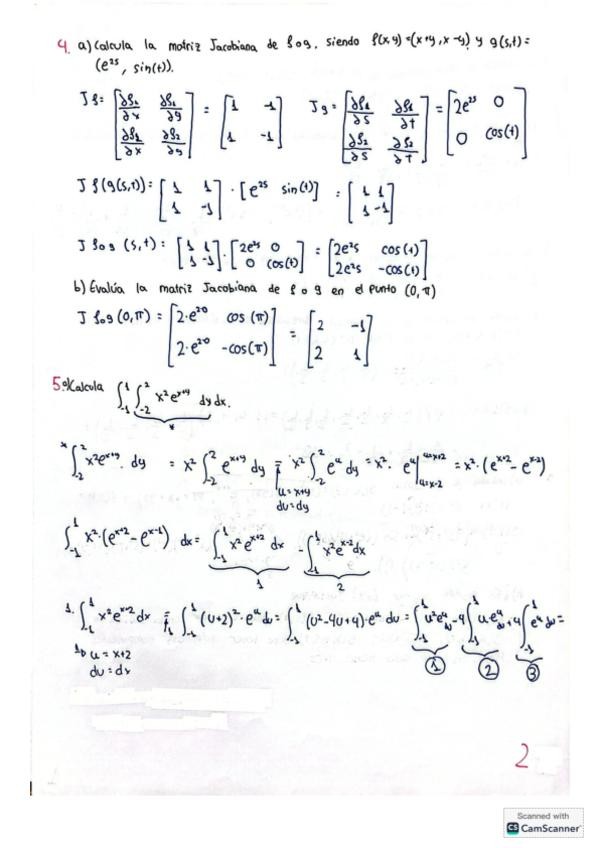 4. a) Calcula la matriz Jacobiana de f∘g, siendo f(x,y)=(x+y, x-y) y g(s,t)=
(e^{2s}, sin(t)).
Jf= [∂f₁/∂x ∂f₁/∂y; ∂f₂/∂x ∂f₂/∂y] = [1 -1; 1 -1] Jg= [∂f₁/∂s ∂f₁/∂t; ∂f₂/∂s ∂f₂/∂t] = [2e^{2s} 0; 0 cos(t)]
Jf(g(s,t))= [1 1; 1 -1] · [e^{2s} sin(t)] = [1 1; 1 -1]
J f∘g (s,t)= [1 1; 1 -1] · [2e^{2s} 0; 0 cos(t)] = [2e^{2s} cos(t); 2e^{2s} -cos(t)]
b) Evalúa la matriz Jacobiana de f∘g en el punto (0,π)
J f∘g (0,π) = [2·e^{2·0} cos(π); 2·e^{2·0} -cos(π)] = [2 -1; 2 1]
5. a) Calcula ∫_{-1}^{1} ∫_{-2}^{2} x²e^{x+y} dy dx.
*
* ∫_{-2}^{2} x²e^{x+y}. dy = x² ∫_{-2}^{2} e^{x+y} dy = x² ∫_{-2}^{2} e^u dy = x². e^u |_{u=x-2}^{u=x+2} = x²·(e^{x+2} - e^{x-2})
u=x+y
du=dy
∫_{-1}^{1} x²·(e^{x+2} - e^{x-2}) dx = ∫_{-1}^{1} x²e^{x+2} dx - ∫_{-1}^{1} x²e^{x-2} dx
1 2
1. ∫_{-1}^{1} x²e^{x+2} dx = ∫_{-1}^{1} (u+2)²·e^u du = ∫_{-1}^{1} (u²-4u+4)·e^u du = ∫_{-1}^{1} u²e^u du - 4 ∫_{-1}^{1} u e^u du + 4 ∫_{-1}^{1} e^u du =
u = x+2
du = dx
① ② ③
2
Scanned with
CS CamScanner